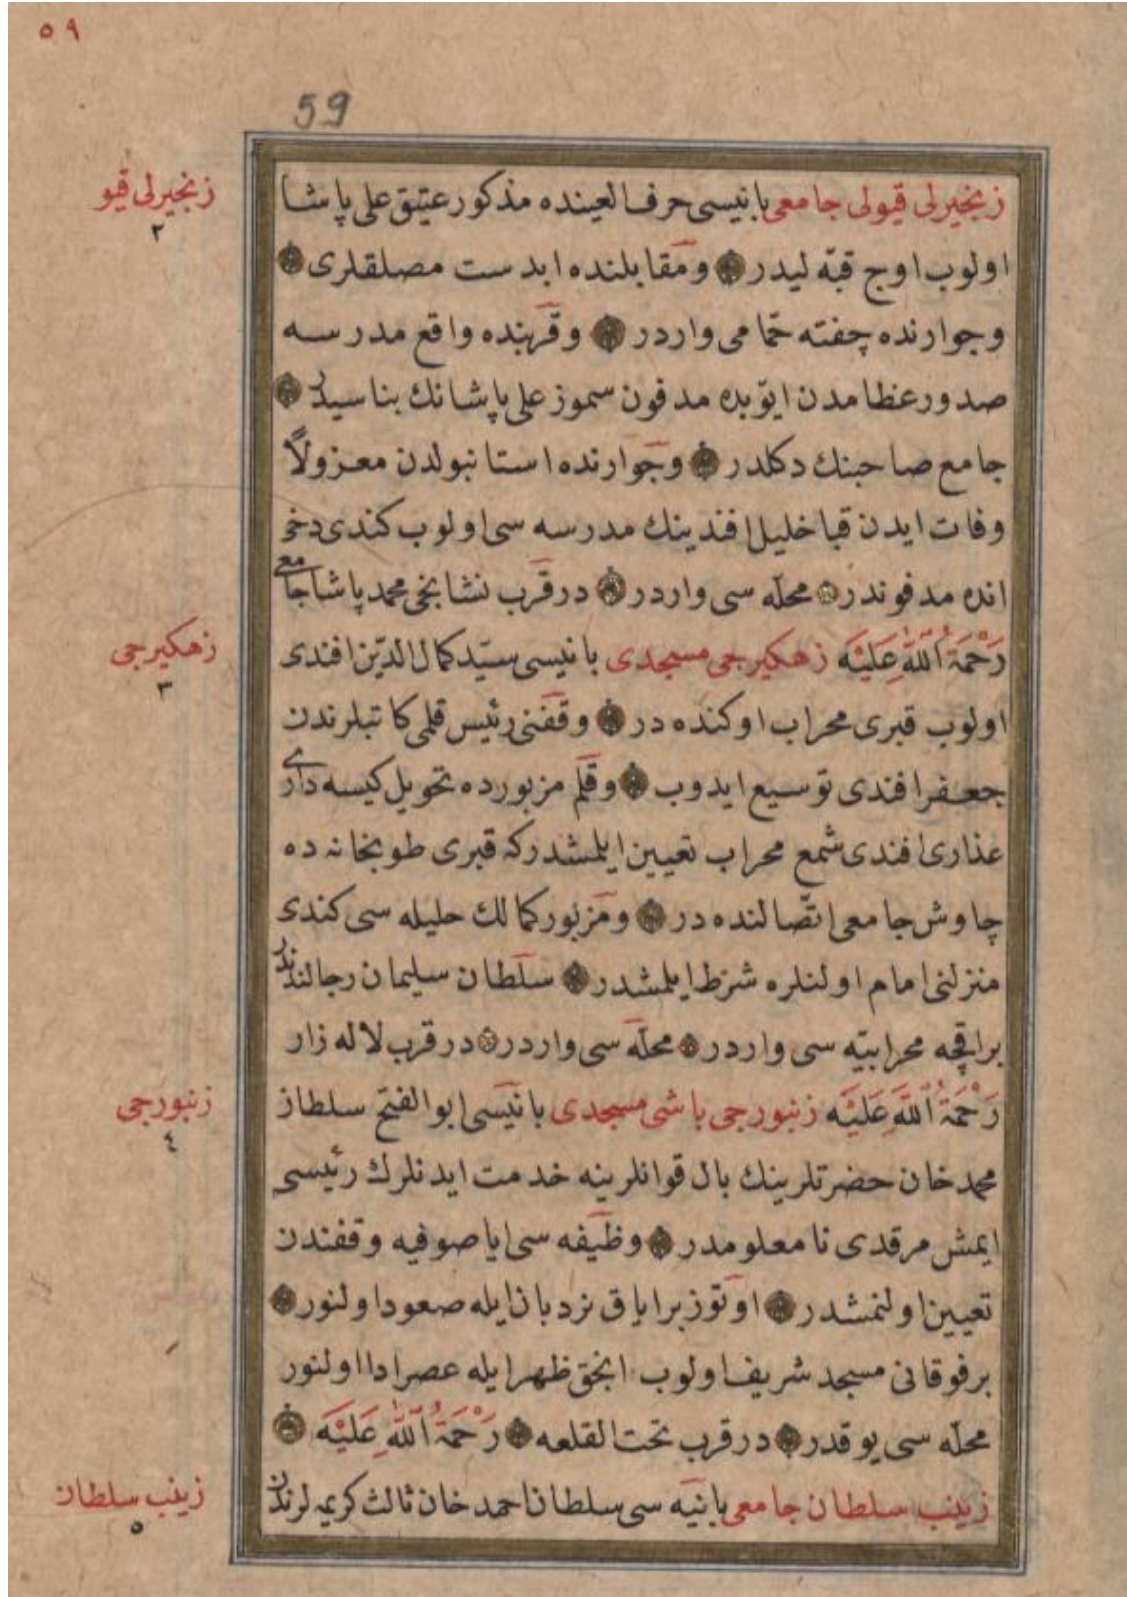 ٥٩
59
زنجيرلى قيولى جامعى بانيسى حرف العينده مذكور عتيق على پاشا
زنجيرلى قيو
٢
اولوب اوج قبّه ليدر ومقابلنده ابدست مصلقلرى
وجوارنده چفته حمّامى واردر وقربنده واقع مدرسه
صدور عظامدن ايّوبده مدفون سموز على پاشانك بناسيدر
جامع صاحبنك دكلدر وجوارنده استانبولدن معزولاً
وفات ايدن قبا خليل افندينك مدرسه سى اولوب كندى دخى
انده مدفوندر محلّه سى واردر در قرب نشانجى محمد پاشا جامعى
رَحْمَةُ اللّٰهِ عَلَيْهَ زهكيرجى مسجدى بانيسى سيّد كمال الدّين افندى
زهكيرجى
٣
اولوب قبرى محراب اوكنده در وقفنى رئيس قلمى كاتبلرندن
جعفر افندى توسيع ايدوب وقلم مزبورده تحويل كيسه دارى
عذارى افندى شمع محراب تعيين ايلمشدركه قبرى طوبخانه ده
چاوش جامعى اتّصالنده در ومزبور كمالك حليله سى كندى
منزلنى امام اولنلره شرط ايلمشدر سلطان سليمان رجالندندر
بر اقچه محرابيّه سى واردر محلّه سى واردر در قرب لاله زار
رَحْمَةُ اللّٰهِ عَلَيْهَ زنبورجى باشى مسجدى بانيسى ابو الفتح سلطان
زنبورجى
٤
محمد خان حضرتلرينك بال قوانلرينه خدمت ايدنلرك رئيسى
ايمش مرقدى نامعلومدر وظيفه سى ايا صوفيه وقفندن
تعيين اولنمشدر اوتوز بر اياق نردبان ايله صعود اولنور
بر فوقانى مسجد شريف اولوب انجق ظهر ايله عصر ادا اولنور
محلّه سى يوقدر در قرب تحت القلعه رَحْمَةُ اللّٰهِ عَلَيْهَ
زينب سلطان جامعى بانيه سى سلطان احمد خان ثالث كريمه لرندن
زينب سلطان
٥